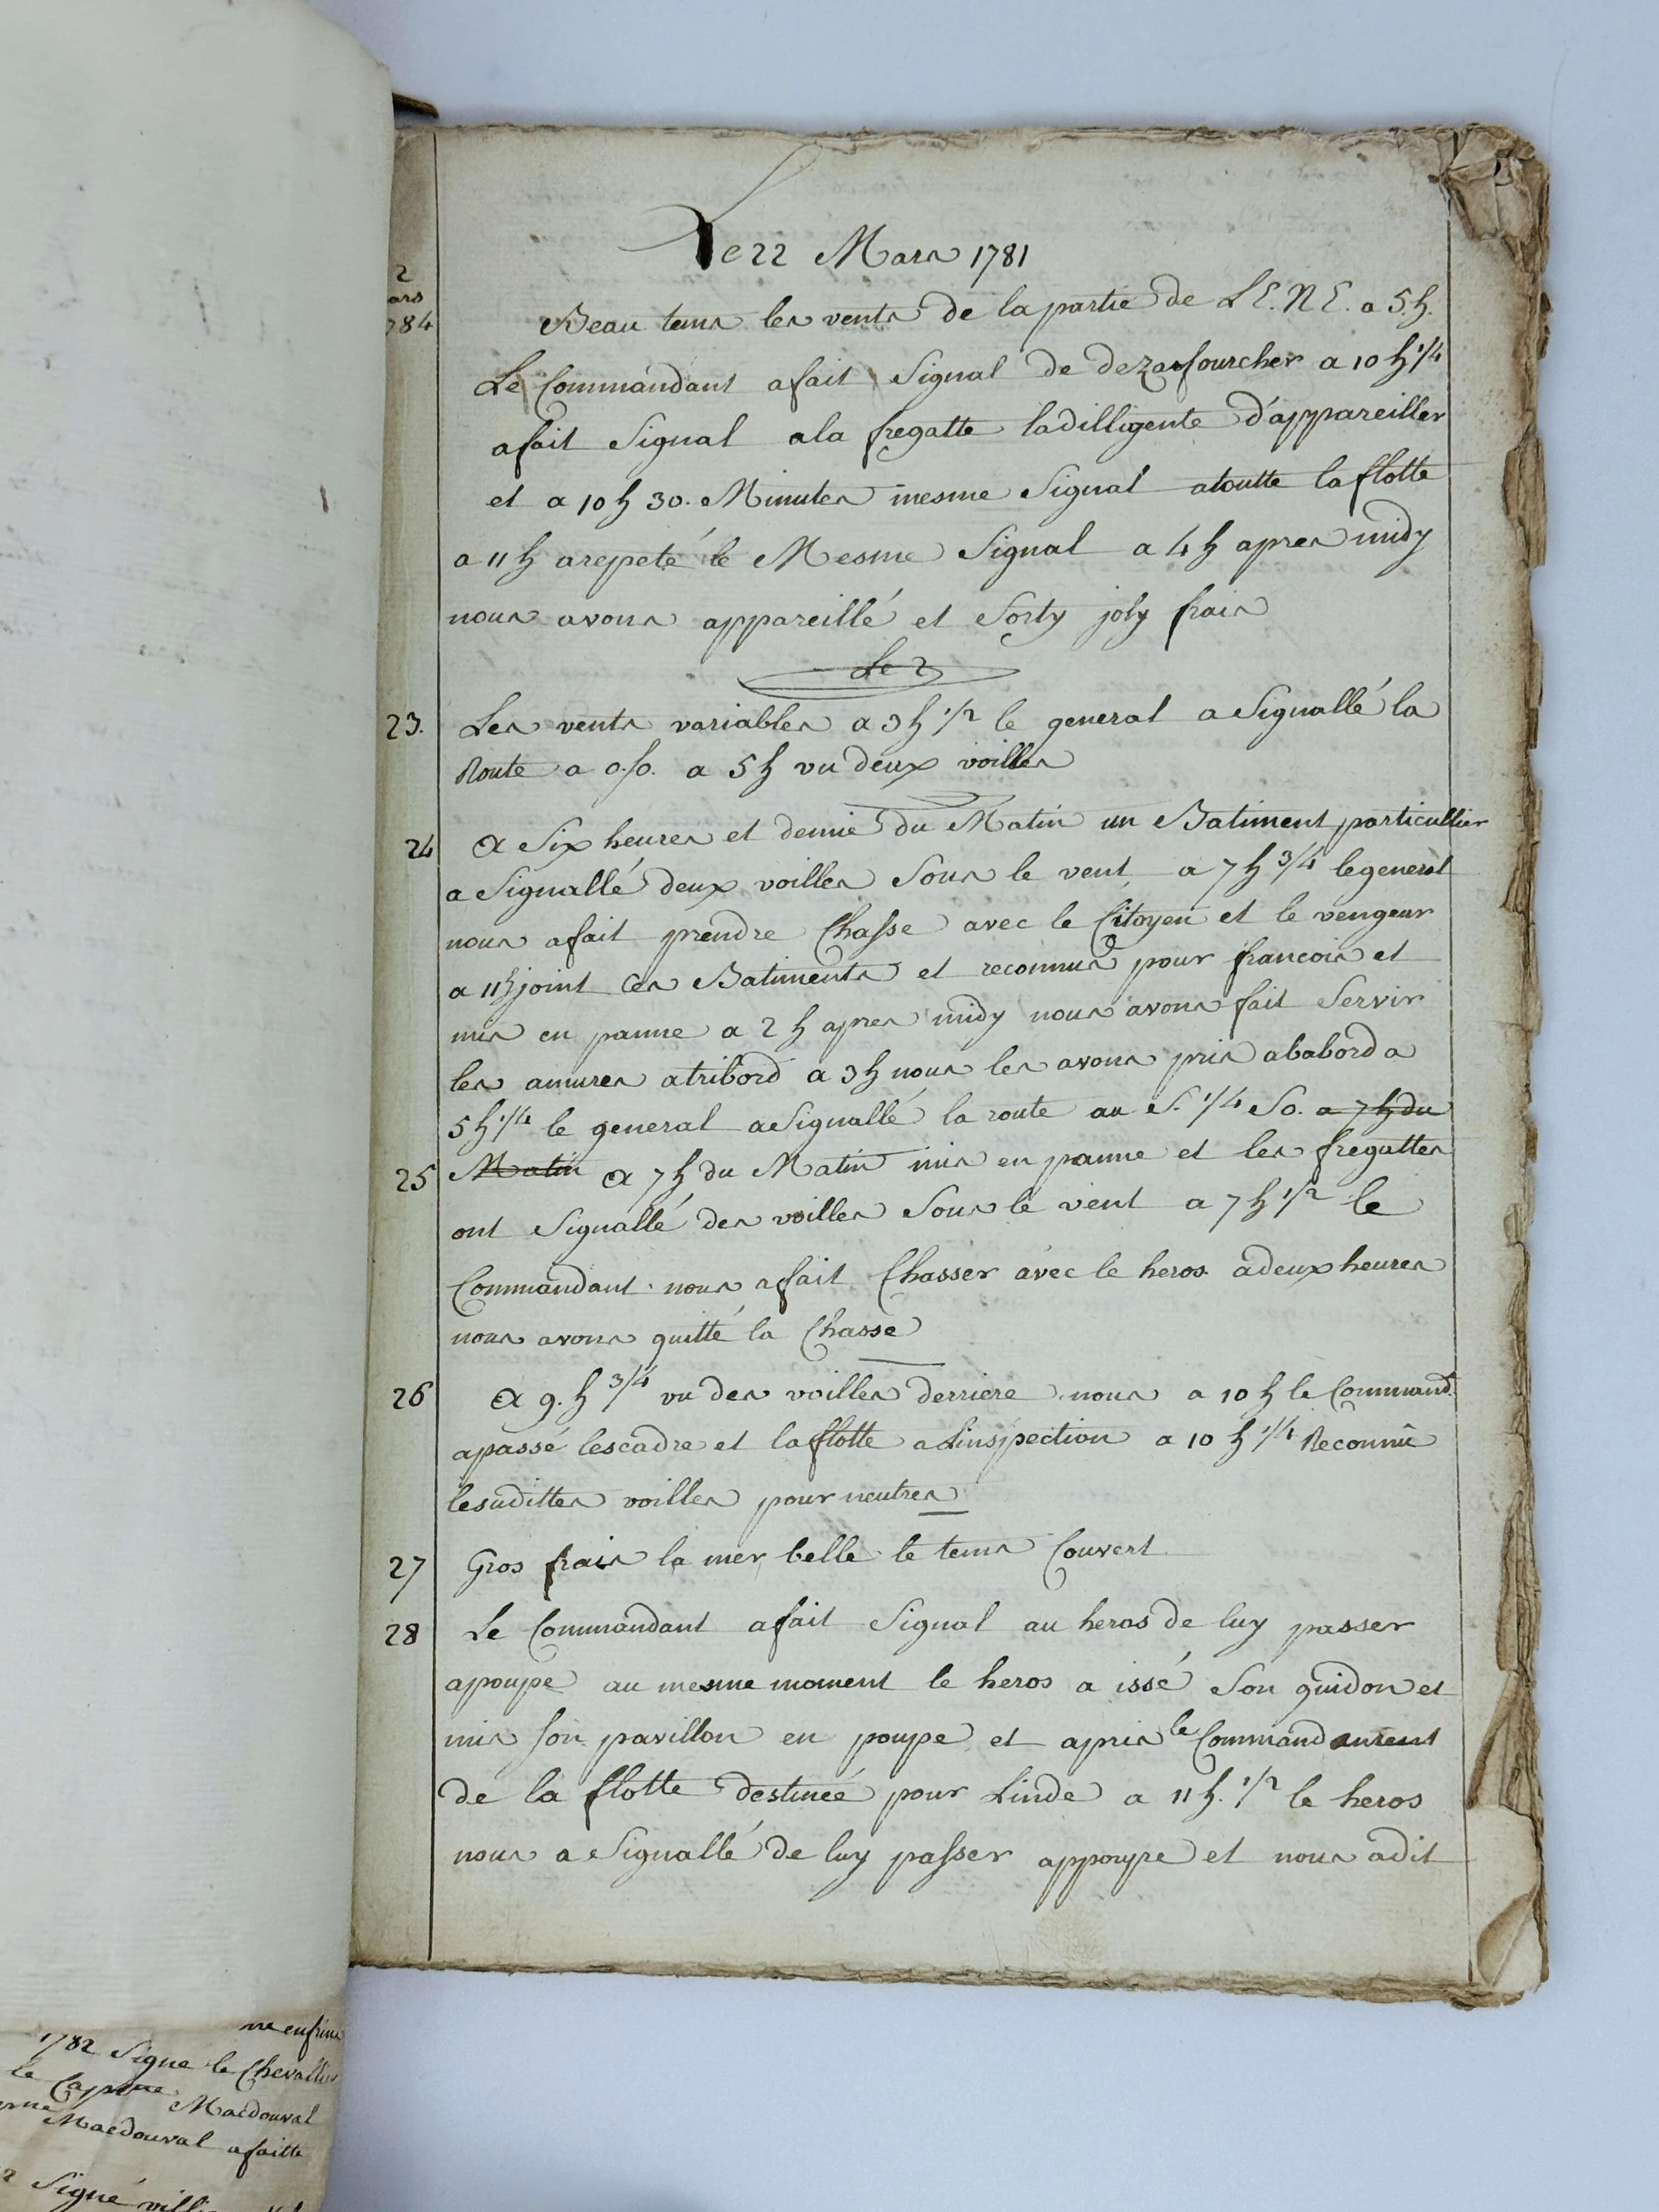 Le 22 Mars 1781
2
ars
784
Beau tems les vents de la partie de L E. N E. a 5. h.
Le Commandant a fait Signal de dezafourcher a 10 h 1/4
a fait Signal a la fregatte la dilligente d'appareiller
et a 10 h 30. Minutes mesme Signal a toutte la flotte
a 11 h a repeté le Mesme Signal a 4 h apres midy
nous avons appareillé et Sorty joly frais
Le 2
23. Les vents variables a 3 h 1/2 le general a Signallé la
Route a o.so. a 5 h vu deux voilles
24 a Six heures et demie du Matin un Batiment particullier
a Signallé deux voilles Sous le vent a 7 h 3/4 le general
nous a fait prendre Chasse avec le Citoyen et le vengeur
a 11 h joint Ces Batiments et reconnus pour francois et
mis en panne a 2 h apres midy nous avons fait Servir
les amures a tribord a 3 h nous les avons pris a babord a
5 h 1/4 le general a Signallé la route au S. 1/4 So. a 7 h du
25 Matin a 7 h du Matin mis en panne et les fregattes
ont Signallé des voilles Sous le vent a 7 h 1/2 le
Commandant nous a fait Chasser avec le heros a deux heures
nous avons quitté la Chasse
26 a 9. h 3/4 vu des voilles derriere nous a 10 h le Command.
a passé lescadre et la flotte a Linspection a 10 h 1/4 Reconnû
lesudittes voilles pour neutres
27 Gros frais la mer belle le tems Couvert
28 Le Commandant a fait Signal au heros de luy passer
a poupe au mesme moment le heros a issé Son guidon et
mis son pavillon en poupe et a pris le Commandement
de la flotte destinée pour Linde a 11 h. 1/2 le heros
nous a Signallé de luy passer appoupe et nous a dit
1782 Signe le Chevallier
le
Macdouval
Macdouval a faitte
Signé